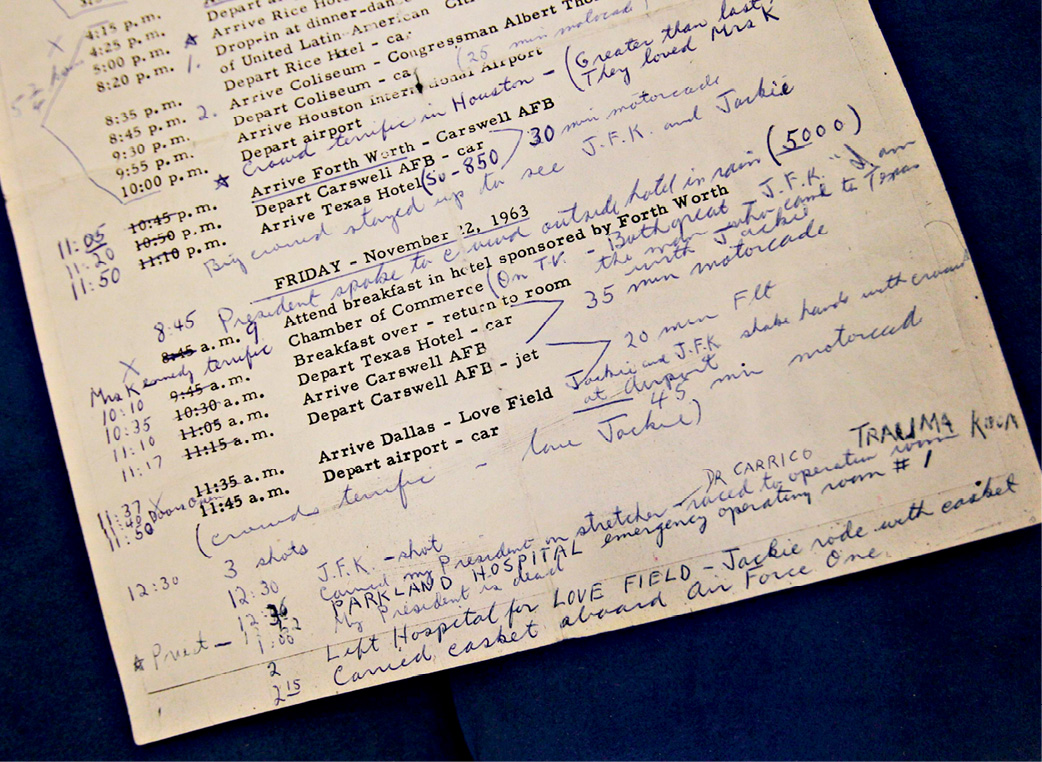 4:15 p.m.
4:25 p.m. Arrive Rice
X 5:00 p.m. Drop-in at dinner-
8:20 p.m. 1. of United Latin-American
Depart Rice Hotel - car
8:35 p.m. Arrive Coliseum - Congressman Albert
8:45 p.m. 2. Depart Coliseum - car (25 min motorcade
9:30 p.m. Arrive Houston International Airport
9:55 p.m. Depart airport
10:00 p.m. Crowd terrific in Houston - (Greater than last
They loved Mrs K
11:05 10:45 p.m. Arrive Forth Worth - Carswell AFB
11:20 10:50 p.m. Depart Carswell AFB - car 30 min motorcade
11:50 11:10 p.m. Arrive Texas Hotel (So-850)
Big crowd stayed up to see J.F.K. and Jackie
FRIDAY - November 22, 1963
8:45 President spoke to crowd outside hotel in rain (5000)
X 8:45 a.m. 9 Attend breakfast in hotel sponsored by Forth Worth
Chamber of Commerce (On T.V. - Both great - J.F.K. "I am
the man who came to Texas
with Jackie
Mrs Kennedy terrific
10:10 9:45 a.m. Breakfast over - return to room
10:35 10:30 a.m. Depart Texas Hotel - car 35 min motorcade
11:10 11:05 a.m. Arrive Carswell AFB
11:17 11:15 a.m. Depart Carswell AFB - jet 20 min Flt
Jackie and J.F.K shake hands with crowd
at Airport
11:37 11:35 a.m. Arrive Dallas - Love Field
11:40 Doors Open
11:50 11:45 a.m. Depart airport - car 45 min motorcad
(crowds terrific - love Jackie)
12:30 3 shots
12:30 J.F.K. - shot
DR CARRICO TRAUMA ROOM
Carried my President on stretcher - raced to operation room
12:36 PARKLAND HOSPITAL emergency operating room #1
Priest - My President is dead
1:00
2 Left Hospital for LOVE FIELD - Jackie rode with casket
2 15 Carried casket aboard Air Force One.